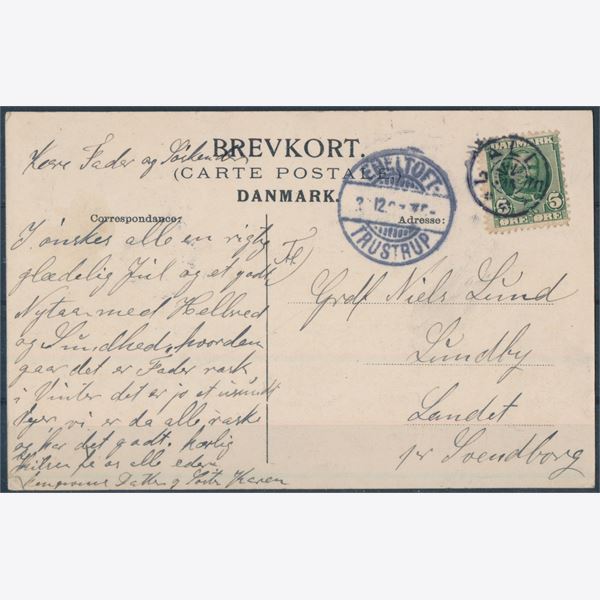 BREVKORT.
(CARTE POSTALE.)
DANMARK.
Correspondance:
Adresse:
Kære Fader og Søskende
I ønskes alle en rigtig
glædelig Jul og et godt
Nytaar med Helbred
og Sundhed, hvordan
gaar det er Fader rask
i Vinter det er jo et usundt
Vejer, vi er da alle raske
og har det godt. Kærlig
Hilsen fra os alle eders
Datter og Søster Karen
Til
Grdf Niels Lund
Lundby
Landet
pr Svendborg
EBELTOFT-
TRUSTRUP
DANMARK
5 5
ØRE ØRE